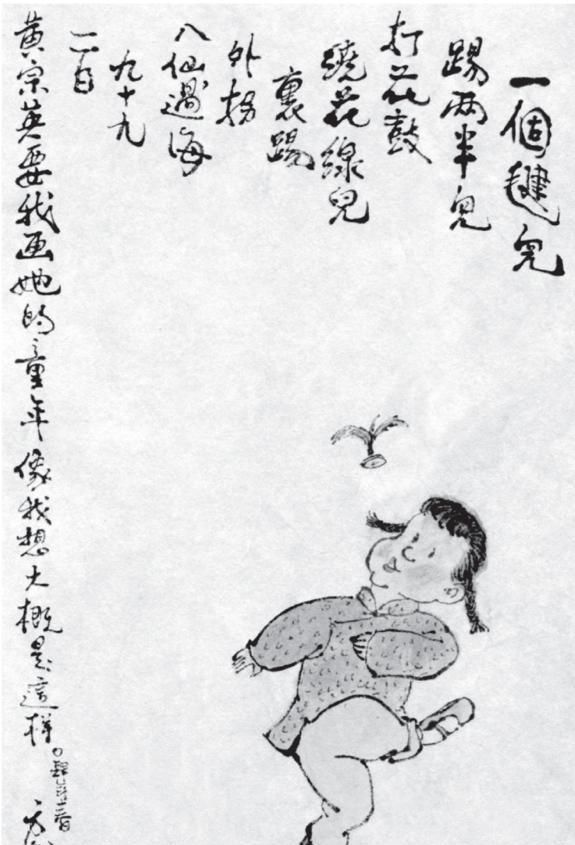 一個毽兒
踢兩半兒
打花鼓
繞花線兒
裏踢
外拐
八仙過海
九十九
一百
黃宗英要我画她的童年像我想大概是這樣。
方